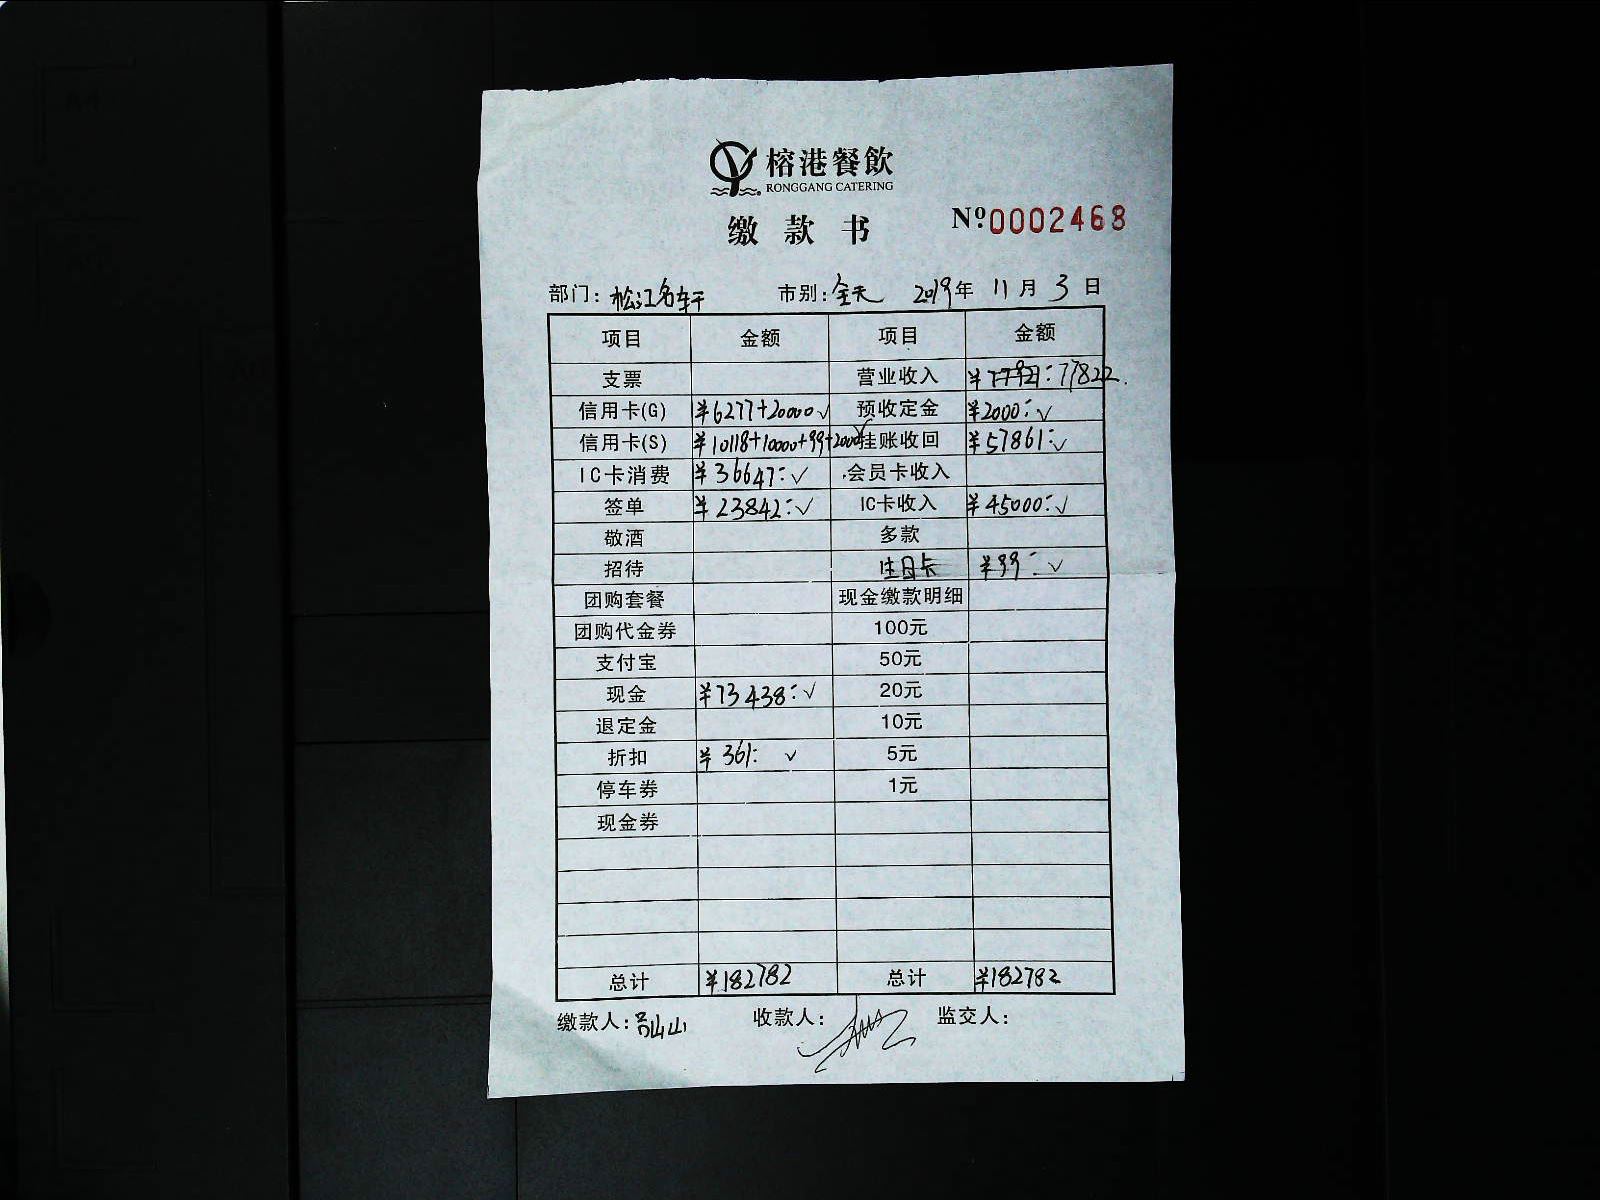 榕港餐飲
RONGGANG CATERING
缴款书 Nº 0002468
部门：松江名轩 市别：全天 2019年 11月 3日
项目 金额 项目 金额
支票 营业收入 77822
信用卡(G) ¥6277+20000√ 预收定金 ¥2000:√
信用卡(S) ¥10118+10000+99+2000√ 挂账收回 ¥57861:√
IC卡消费 ¥36647:√ 会员卡收入
签单 ¥23842:√ IC卡收入 ¥45000:√
敬酒 多款
招待 生日卡 ¥99:√
团购套餐 现金缴款明细
团购代金券 100元
支付宝 50元
现金 ¥73438:√ 20元
退定金 10元
折扣 ¥361: √ 5元
停车券 1元
现金券
总计 ¥182782 总计 ¥182782
缴款人：吕山山 收款人： 监交人：